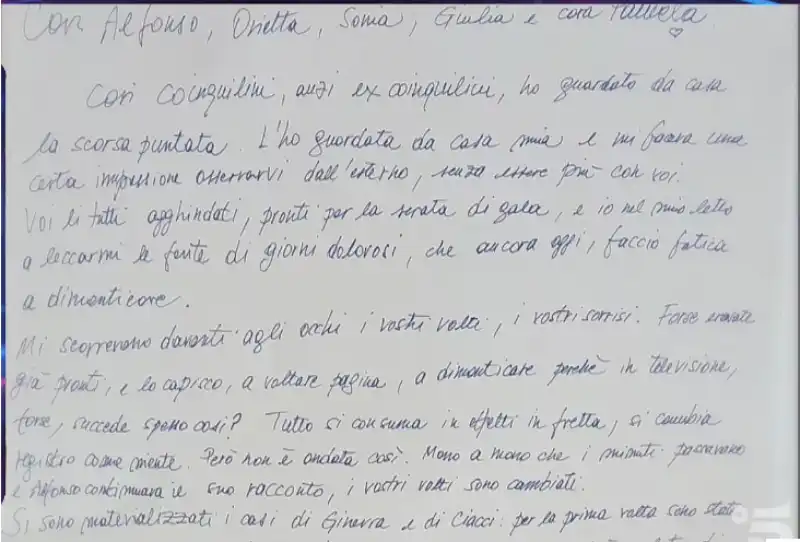 Cari Alfonso, Orietta, Sonia, Giulia e cara Pamela.
Cari coinquilini, anzi ex coinquilini, ho guardato da casa
la scorsa puntata. L'ho guardata da casa mia e mi faceva una
certa impressione osservarvi dall'esterno, senza essere più con voi.
Voi lì tutti agghindati, pronti per la serata di gala, e io nel mio letto
a leccarmi le ferite di giorni dolorosi, che ancora oggi, faccio fatica
a dimenticare.
Mi scorrevano davanti agli occhi i vostri volti, i vostri sorrisi. Forse eravate
già pronti, e lo capisco, a voltare pagina, a dimenticare perché in televisione,
forse, succede spesso così? Tutto si consuma in effetti in fretta, si cambia
registro come niente. Però non è andata così. Mano a mano che i minuti passavano
e Alfonso continuava il suo racconto, i vostri volti sono cambiati.
Si sono materializzati i casi di Ginevra e di Ciacci: per la prima volta sono stati